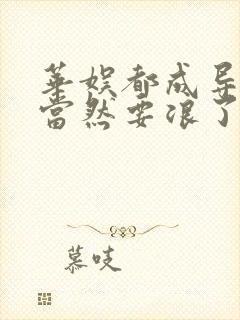 華娱都成导
當然要浪了
慕吱